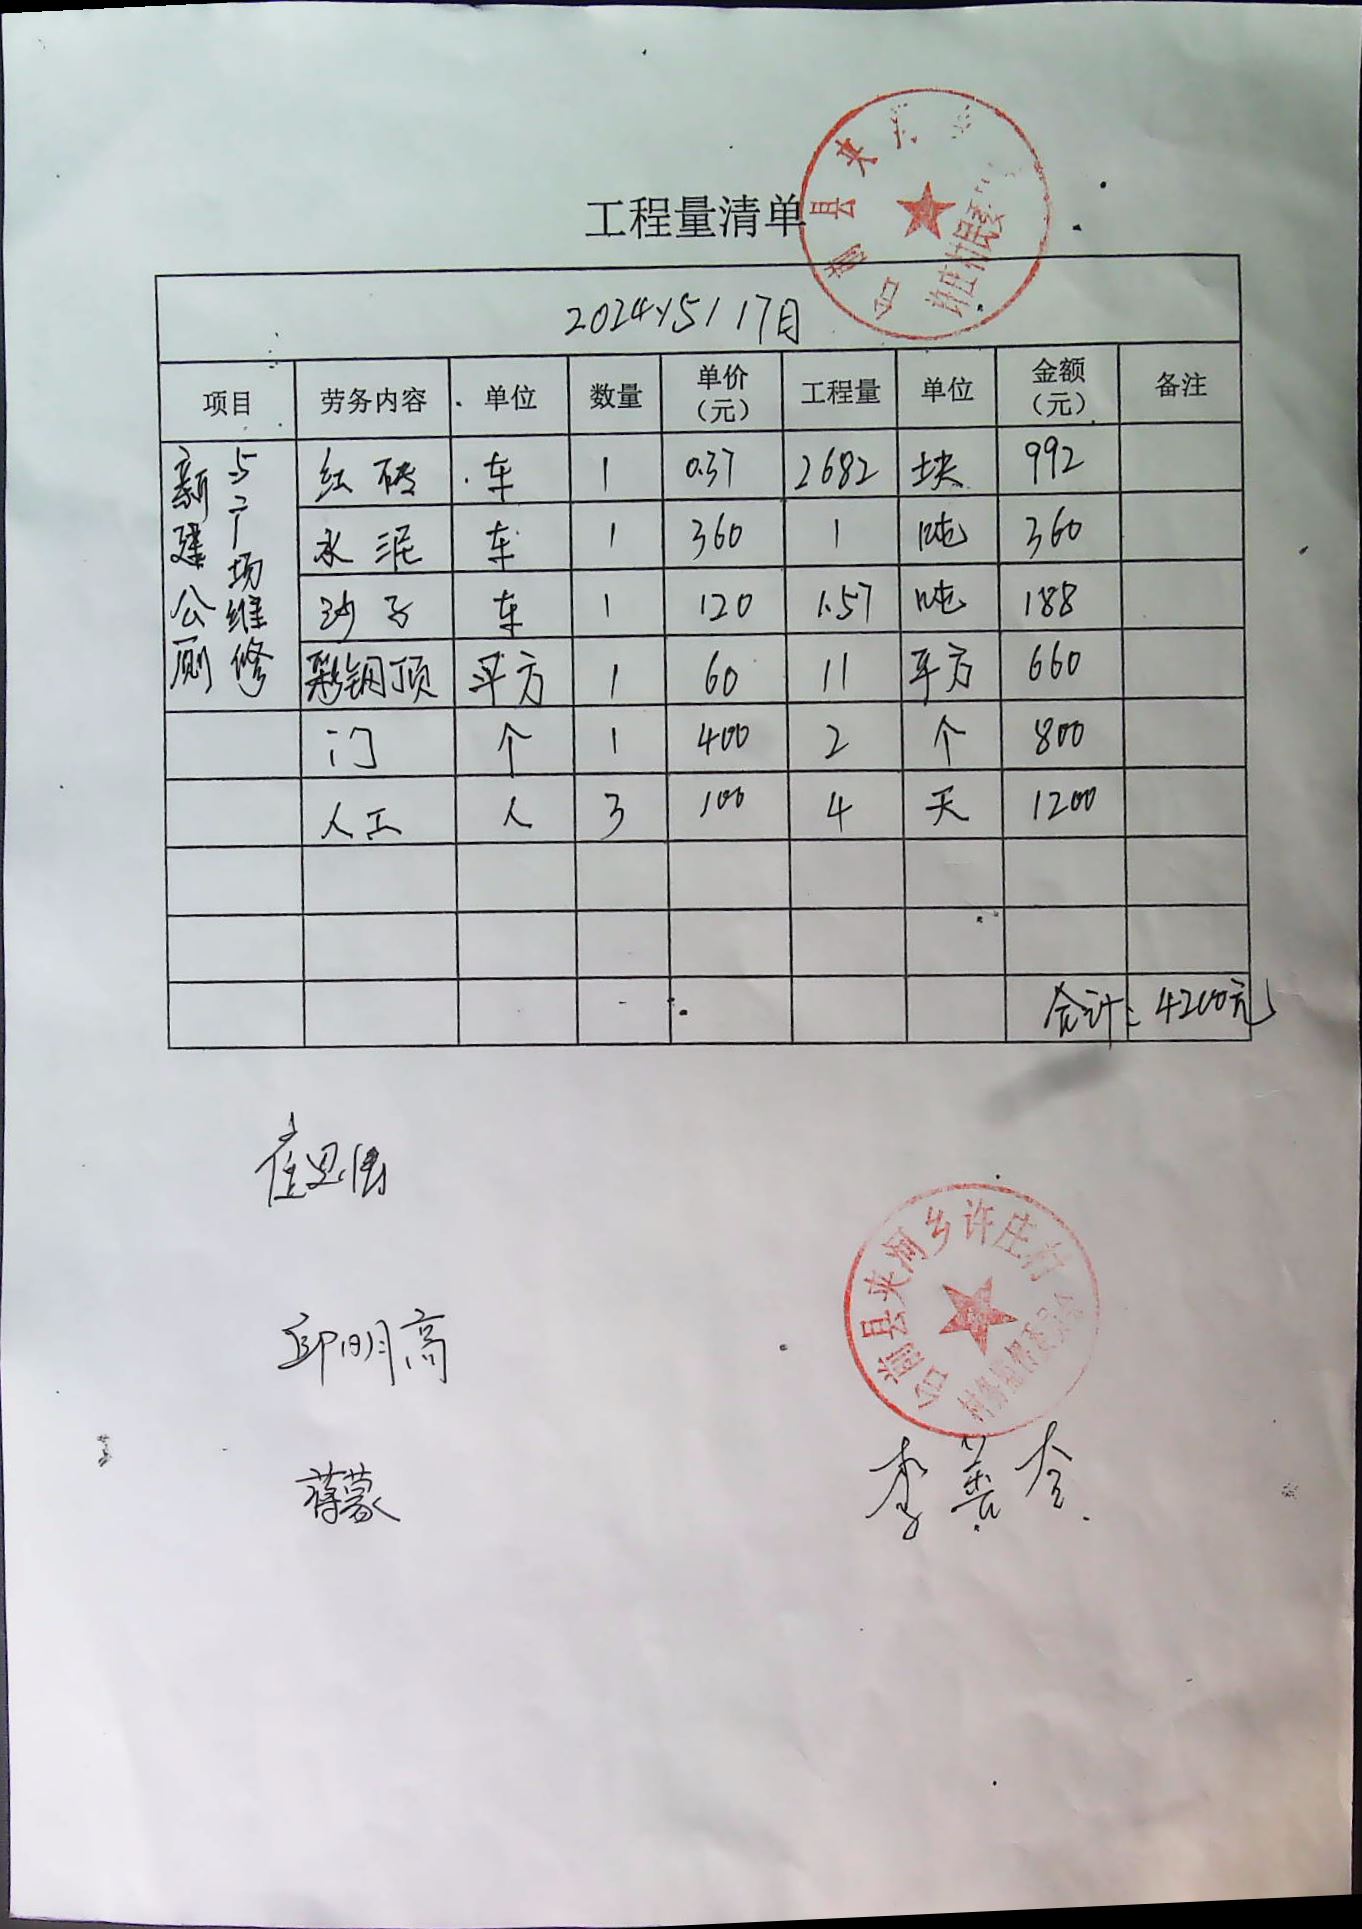 工程量清单
2024.5.17日
项目 劳务内容 单位 数量 单价（元） 工程量 单位 金额（元） 备注
新建公厕与广场维修
红砖 车 1 0.37 2682 块 992
水泥 车 1 360 1 吨 360
沙子 车 1 120 1.57 吨 188
彩钢顶 平方 1 60 11 平方 660
门 个 1 400 2 个 800
人工 人 3 100 4 天 1200
合计: 4200元
台前县夹河乡许庄村
村务监督委员会
邱明高
蒋蒙
李善全
台前县夹
许庄村民委